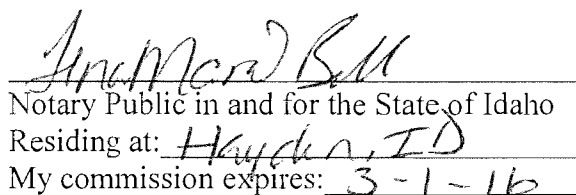 Bell
Notary Public in and for the State of Idaho
Residing at: Hayden, ID
My commission expires: 3-1-16